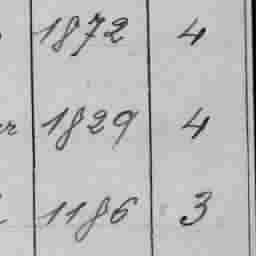 1872 4
1829 4
1186 3